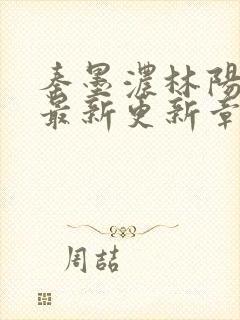 秦墨濃林陽
最新更新章
周喆